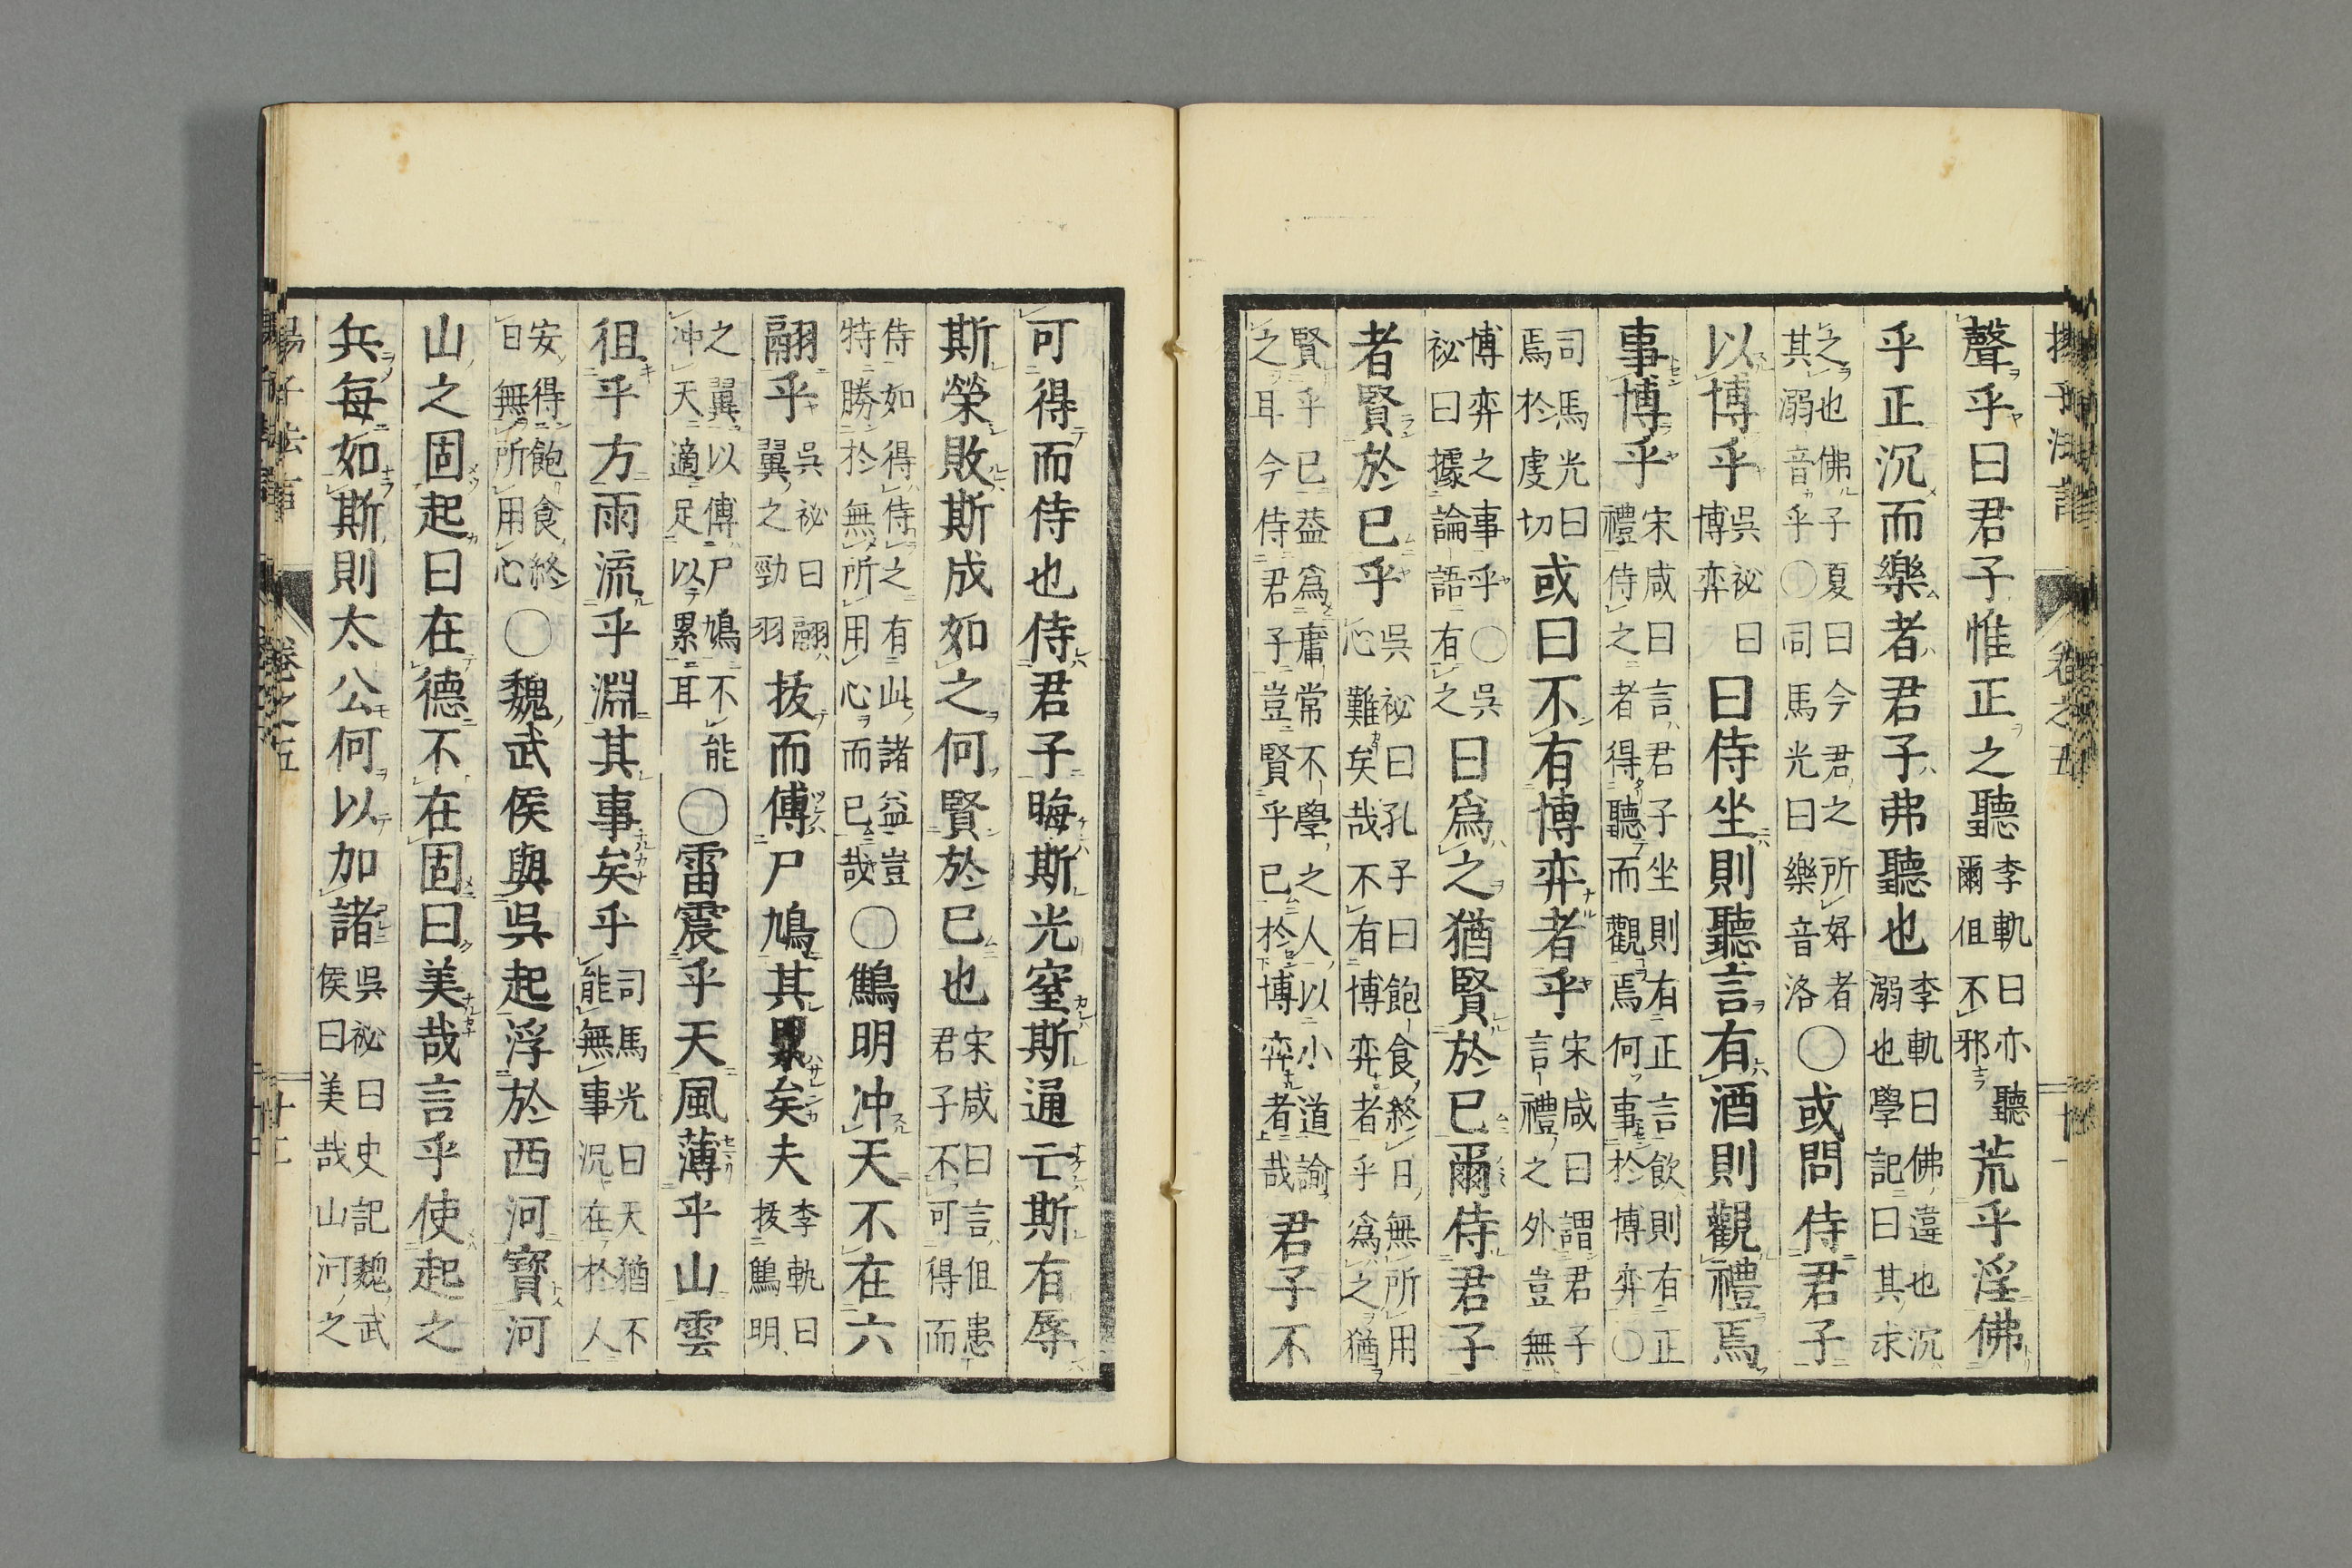 聲乎曰君子惟正之聽李軌曰亦聽爾但不邪荒乎淫佛
乎正沉而樂者君子弗聽也李軌曰佛違也沉溺也學記曰其求
之也佛子夏曰今君之所好者其溺音乎〇司馬光曰樂音洛〇或問侍君子
以博乎吳祕曰博弈曰侍坐則聽言有酒則觀禮焉
事博乎宋咸曰言君子坐則有正言飲則有正禮侍之者得聽而觀焉何事於博弈〇
司馬光曰焉於虔切或曰不有博弈者乎宋咸曰謂君子言禮之外豈無
博弈之事乎〇吳祕曰據論語有之曰爲之猶賢於已爾侍君子
者賢於已乎吳祕曰孔子曰飽食終日無所用心難矣哉不有博弈者乎爲之猶
賢乎已葢爲庸常不學之人以小道諭之耳今侍君子豈賢乎已於博弈者哉君子不
可得而侍也侍君子晦斯光窒斯通亡斯有辱
斯榮敗斯成如之何賢於已也宋咸曰言但患君子不可得而
侍如得侍之有此諸益豈特勝於無所用心而已哉〇鷦明冲天不在六
翮乎吳祕曰翮翼之勁羽拔而傅尸鳩其累矣夫李軌曰拔鷦明
之翼以傅尸鳩不能冲天適足以累耳〇雷震乎天風薄乎山雲
徂乎方雨流乎淵其事矣乎司馬光曰天猶不能無事況在於人
安得飽食終日無所用心〇魏武侯與吳起浮於西河寶河
山之固起曰在德不在固曰美哉言乎使起之
兵每如斯則太公何以加諸吳祕曰史記魏武侯曰美哉山河之